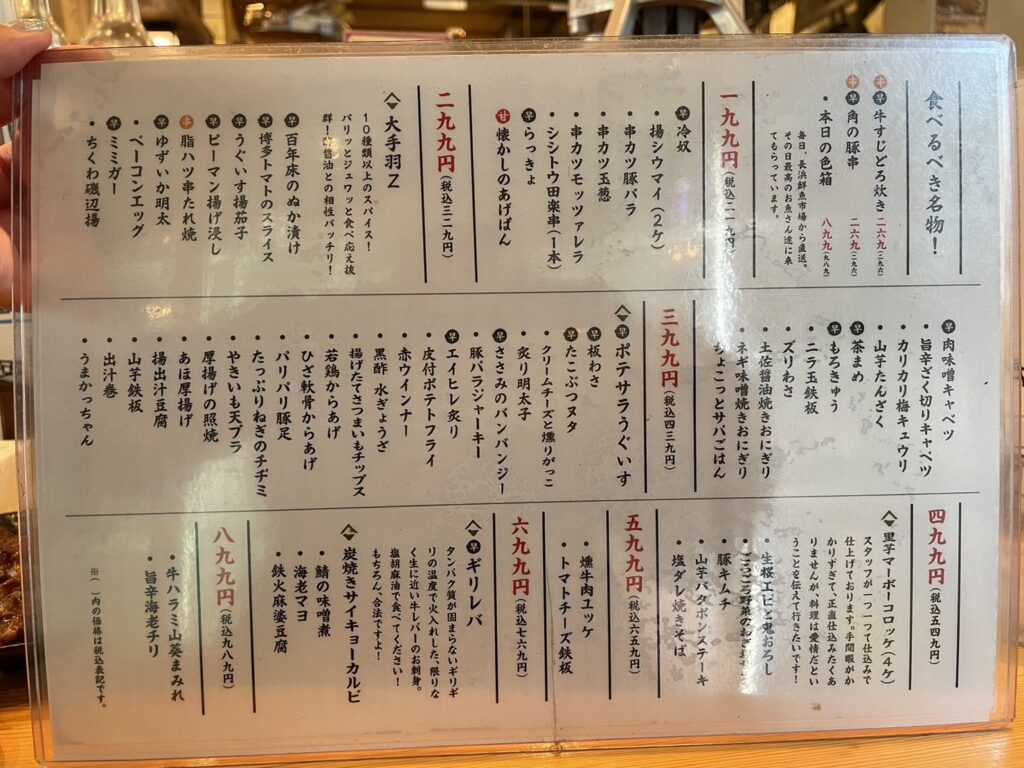 食べるべき名物！
串 早 牛すじどろ炊き 二六九(二九六)
串 早 角の豚串 二六九(二九六)
・本日の色箱 八九九(九八九)
毎日、長浜鮮魚市場から直送。
その日最高のお魚さん達に来
てもらっています。
一九九円(税込二一九円)
早 冷奴
・揚シウマイ(２ケ)
・串カツ豚バラ
・串カツ玉葱
・串カツモッツァレラ
・シシトウ田楽串(１本)
早 らっきょ
甘 懐かしのあげぱん
二九九円(税込三二九円)
大手羽Z
10種類以上のスパイス！
パリッとジュワッと食べ応え抜
群！酢醤油との相性バッチリ！
早 百年床のぬか漬け
早 博多トマトのスライス
早 うぐいす揚茄子
早 ピーマン揚げ浸し
串 脂ハツ串たれ焼
早 ゆずいか明太
・ベーコンエッグ
早 ミミガー
・ちくわ磯辺揚
早 肉味噌キャベツ
・旨辛ざく切りキャベツ
・カリカリ梅キュウリ
・山芋たんざく
早 茶まめ
早 もろきゅう
・ニラ玉鉄板
・ズリわさ
・土佐醤油焼きおにぎり
・ネギ味噌焼きおにぎり
・ちょこっとサバごはん
三九九円(税込四三九円)
早 ポテサラうぐいす
早 板わさ
早 たこぶつヌタ
・クリームチーズと燻りがっこ
・炙り明太子
早 ささみのバンバンジー
・豚バラジャーキー
早 エイヒレ炙り
・皮付ポテトフライ
・赤ウインナー
・黒酢 水ぎょうざ
・揚げたてさつまいもチップス
・若鶏からあげ
・ひざ軟骨からあげ
・パリパリ豚足
・たっぷりねぎのチヂミ
・やきいも天プラ
・厚揚げの照焼
・あほ厚揚げ
・揚出汁豆腐
・山芋鉄板
・出汁巻
・うまかっちゃん
四九九円(税込五四九円)
里芋マーボーコロッケ(４ケ)
スタッフが一つ一つ仕込みで
仕上げております。手間暇がか
かりすぎて、正直仕込みたくあ
りませんが、料理は愛情だとい
うことを伝えて行きたいです！
・生桜エビと鬼おろし
・ごろごろ野菜の
・豚キムチ
・山芋バタポンステーキ
・塩ダレ焼きそば
五九九円(税込六五九円)
・燻牛肉ユッケ
・トマトチーズ鉄板
六九九円(税込七六九円)
早 ギリレバ
タンパク質が固まらないギリギ
リの温度で火入れした、限りな
く生に近い牛レバーのお刺身。
塩胡麻油で食べてください！
もちろん、合法ですよ！
炭焼きサイキョーカルビ
・鯖の味噌煮
・海老マヨ
・鉄火麻婆豆腐
八九九円(税込九八九円)
・牛ハラミ山葵まみれ
・旨辛海老チリ
※( )内の価格は税込表記です。